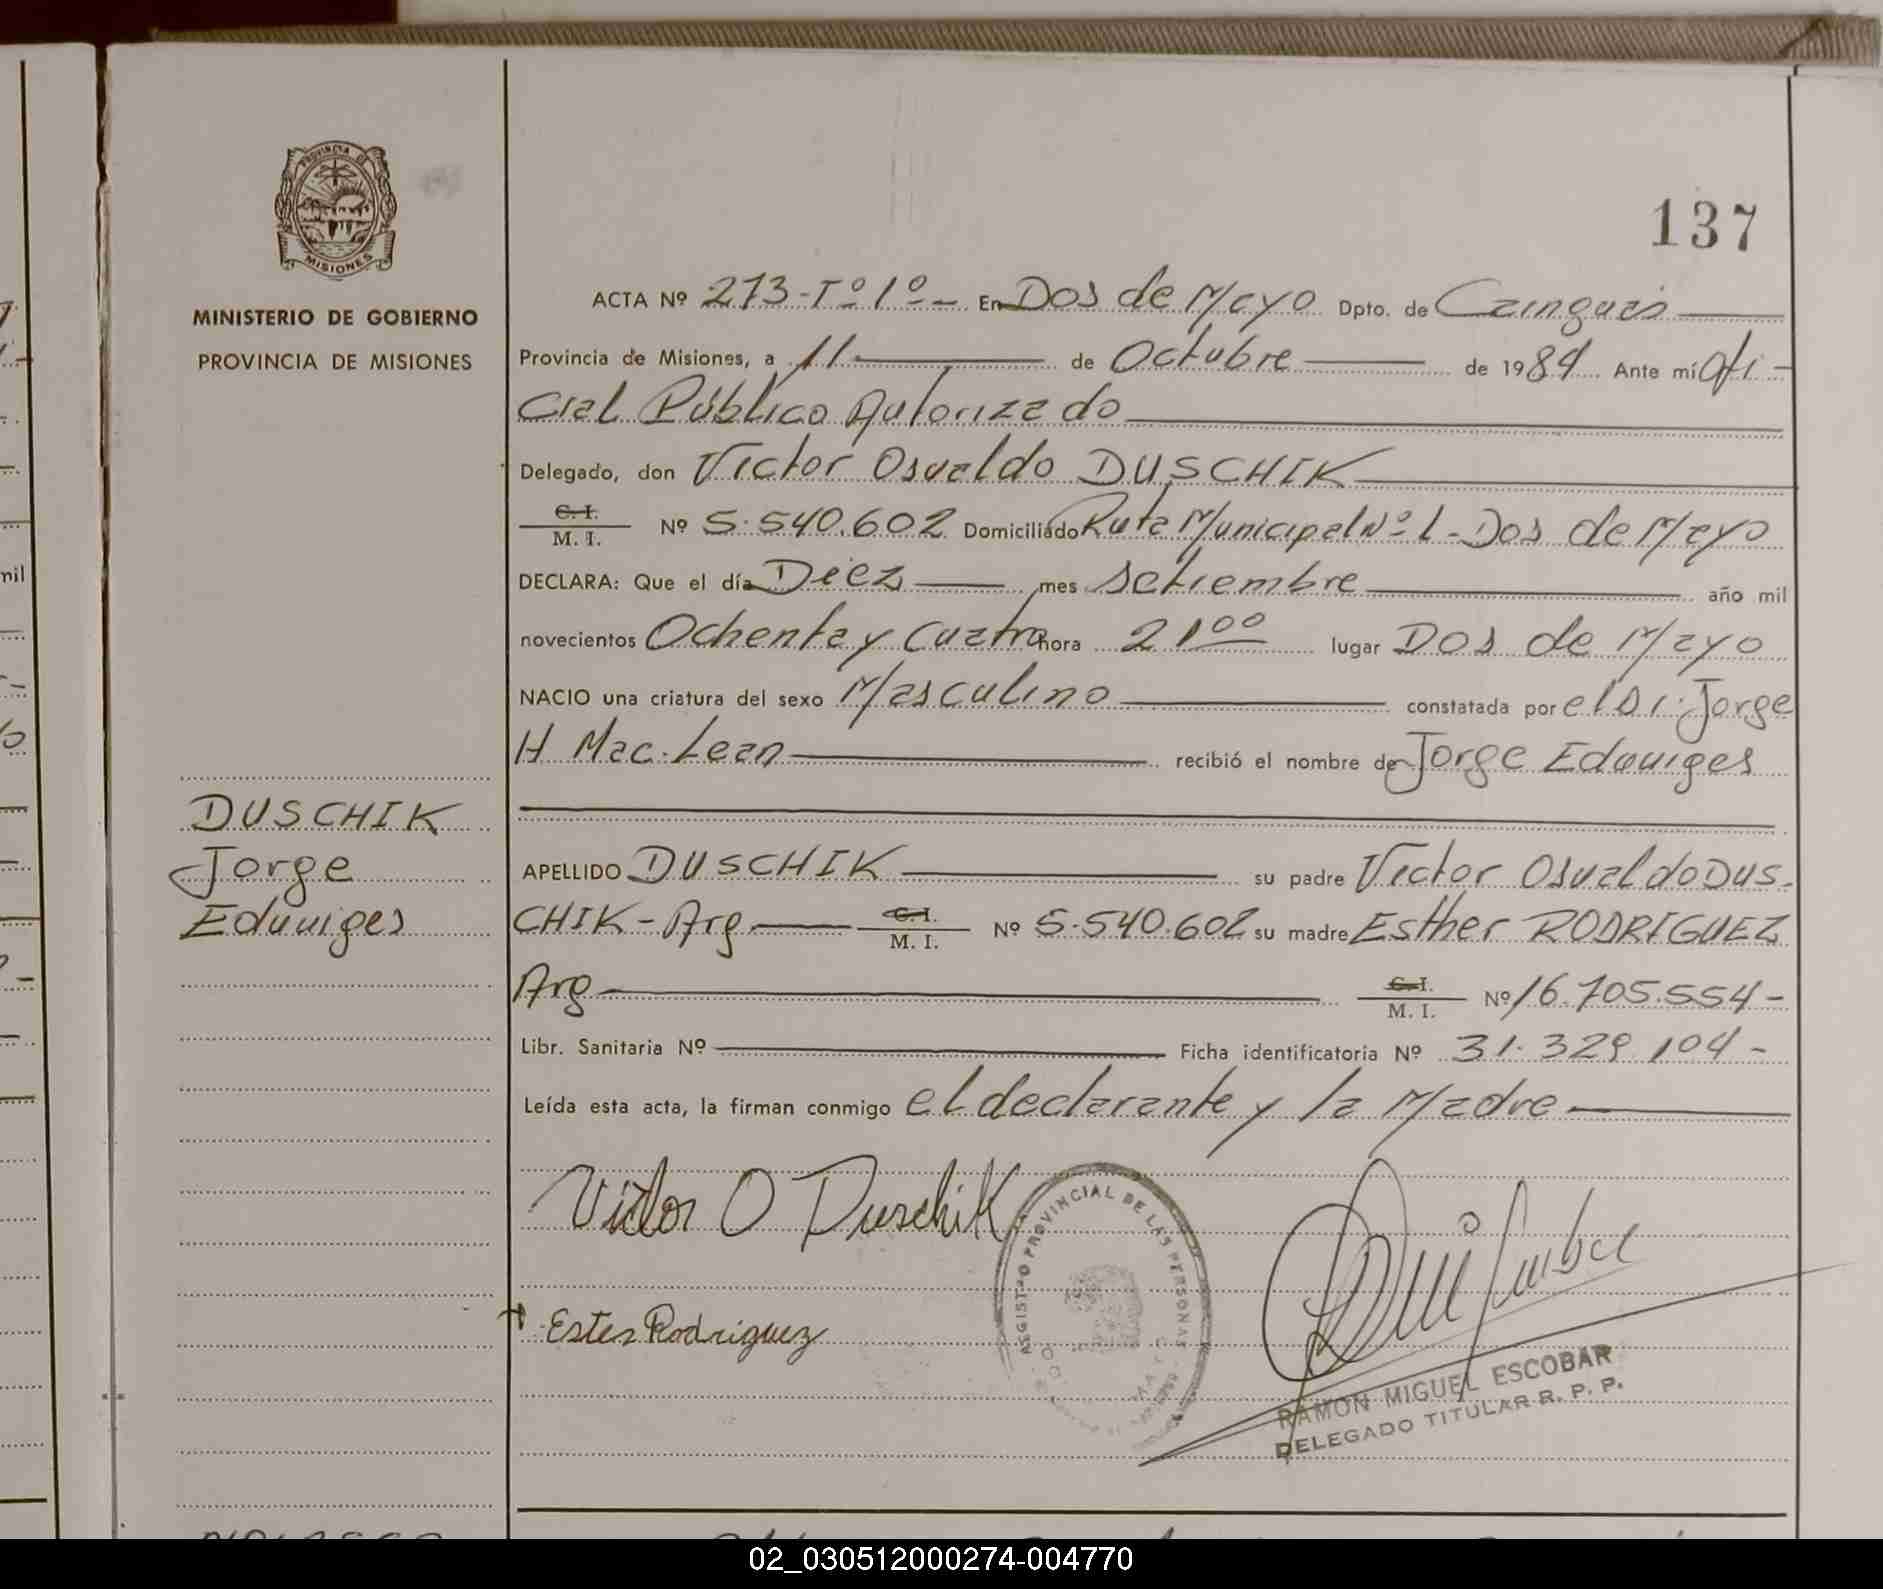 PROVINCIA DE
MISIONES
MINISTERIO DE GOBIERNO
PROVINCIA DE MISIONES
DUSCHIK
Jorge
Eduviges
137
ACTA Nº 273-Tº1º- En Dos de Mayo Dpto. de Cainguás
Provincia de Misiones, a 11 de Octubre de 1984 Ante mí Ofi-
cial Público Autorizado
Delegado, don Victor Osvaldo DUSCHIK
C. I.
M. I. Nº 5.540.602 Domiciliado Ruta Municipal Nº 1 - Dos de Mayo
DECLARA: Que el día Diez mes setiembre año mil
novecientos Ochenta y Cuatro hora 21⁰⁰ lugar Dos de Mayo
NACIO una criatura del sexo Masculino constatada por el Dr. Jorge
H Mac. Lean recibió el nombre de Jorge Eduviges
APELLIDO DUSCHIK su padre Victor Osvaldo DUS-
CHIK - Arg C. I. M. I. Nº 5.540.602 su madre Esther RODRIGUEZ
Arg C. I. M. I. Nº 16.705.554-
Libr. Sanitaria Nº Ficha identificatoria Nº 31.329.104-
Leída esta acta, la firman conmigo el declarante y la Madre
Victor O Duschik
REGISTRO PROVINCIAL DE LAS PERSONAS
Ester Rodriguez
RAMON MIGUEL ESCOBAR
DELEGADO TITULAR R. P. P.
mil
02_030512000274-004770